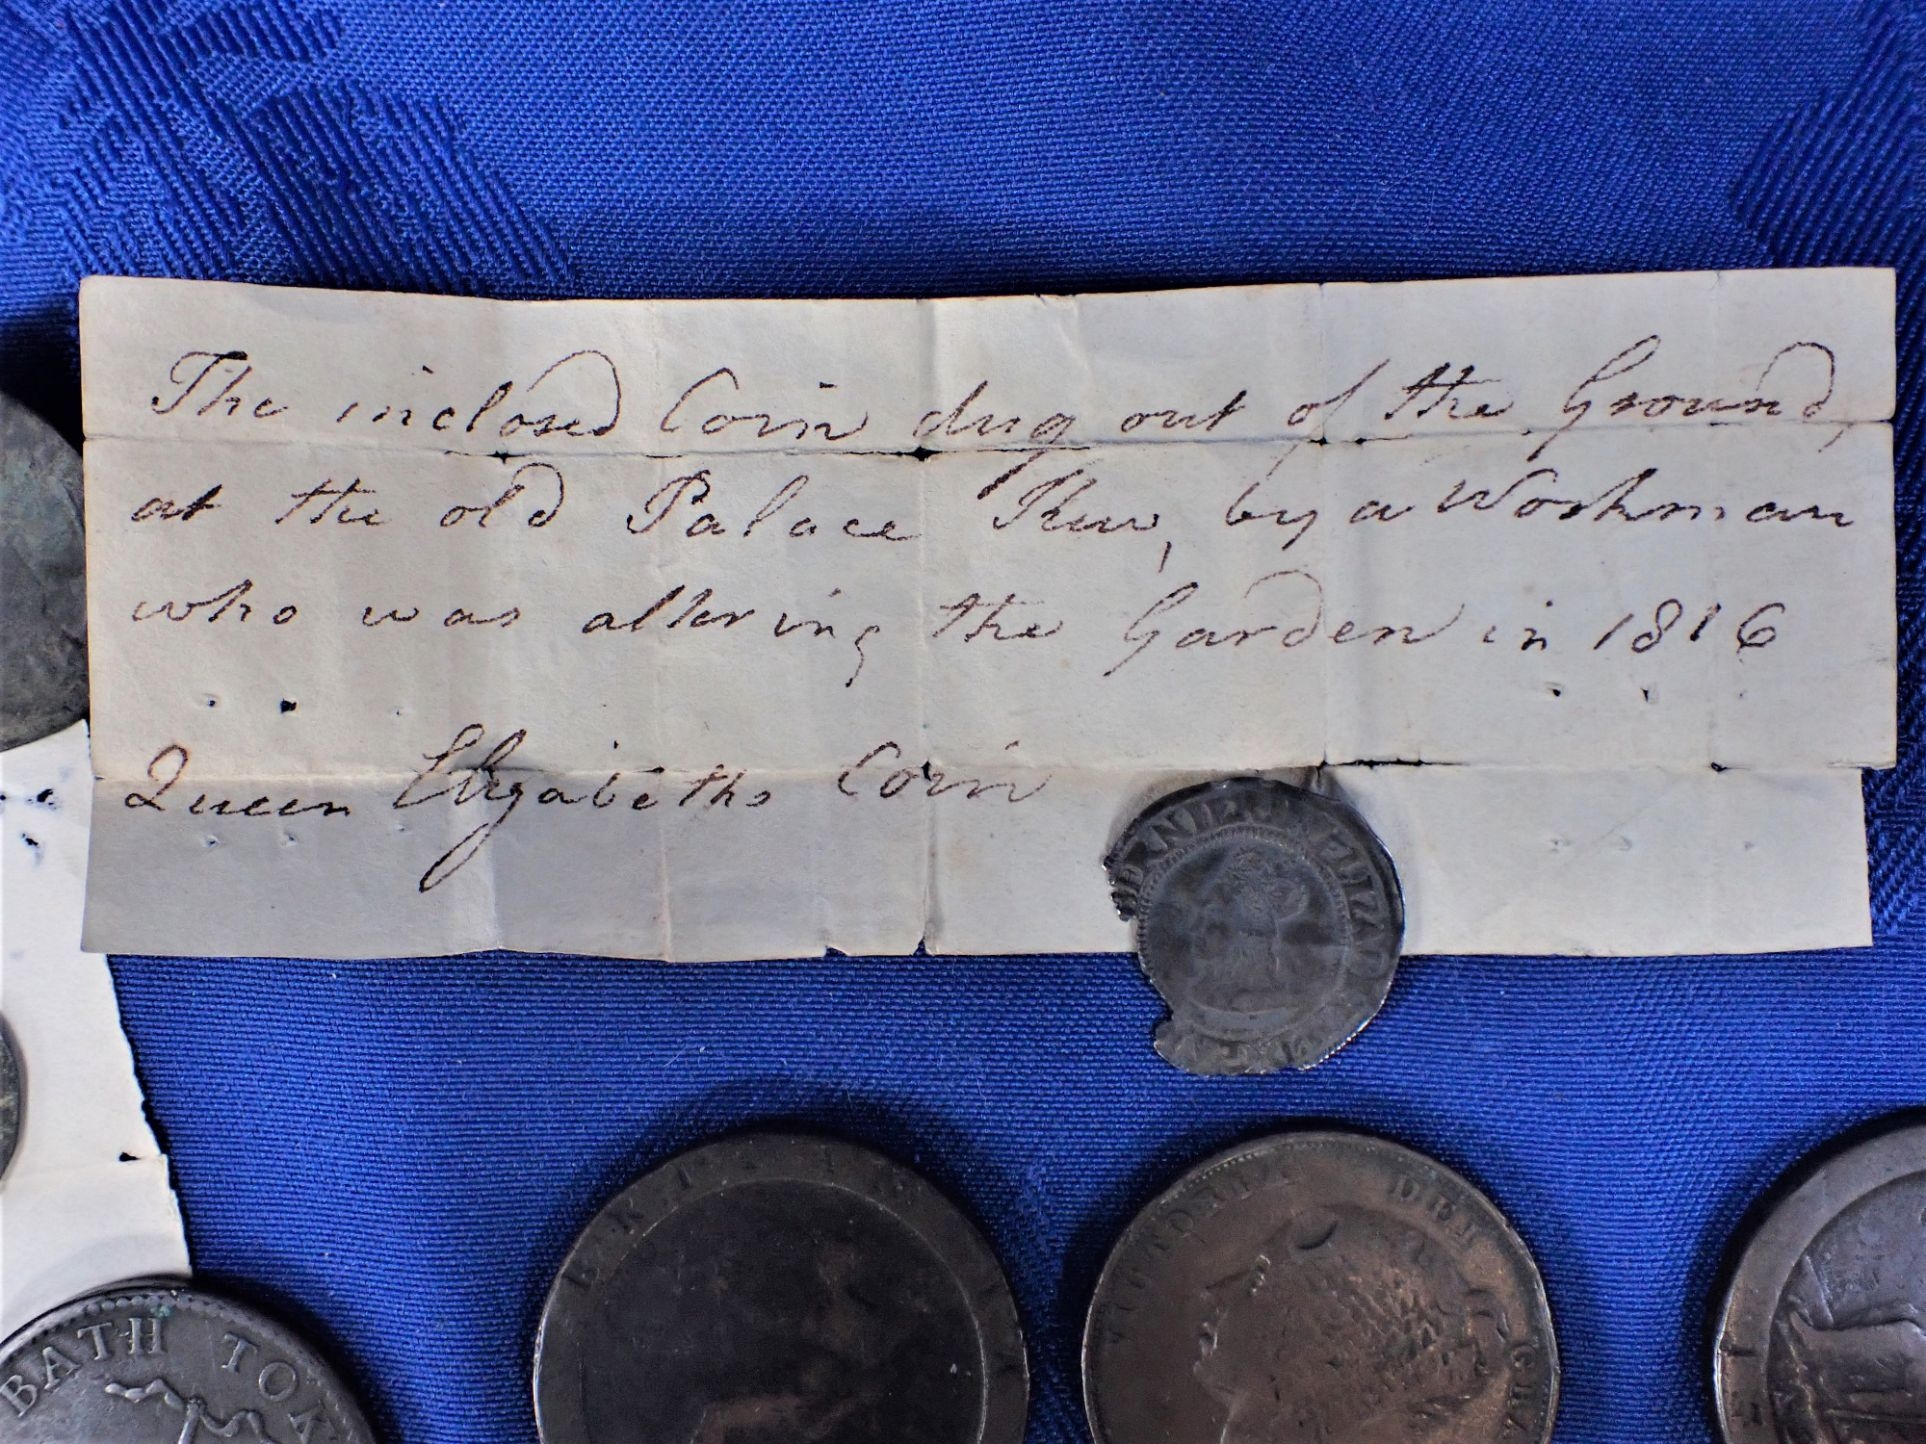 The inclosed Coin dug out of the Ground,
at the old Palace Kew, by a Workman
who was altering the Garden in 1816
Queen Elizabeths Coin
BATH TOK
VICTORIA DEI GRA